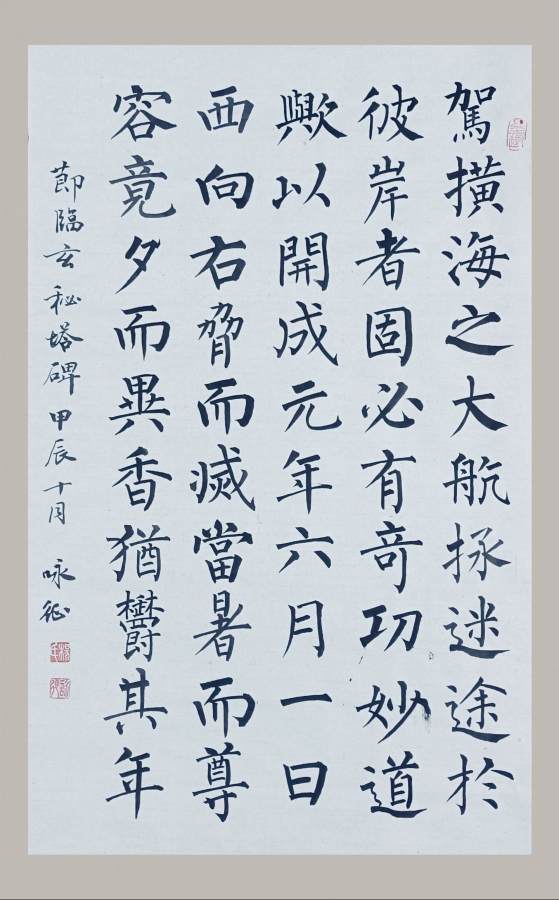 駕橫海之大航拯迷途於
彼岸者固必有奇功妙道
歟以開成元年六月一日
西向右脅而滅當暑而尊
容竟夕而異香猶欝其年
節臨玄秘塔碑 甲辰十月 咏征